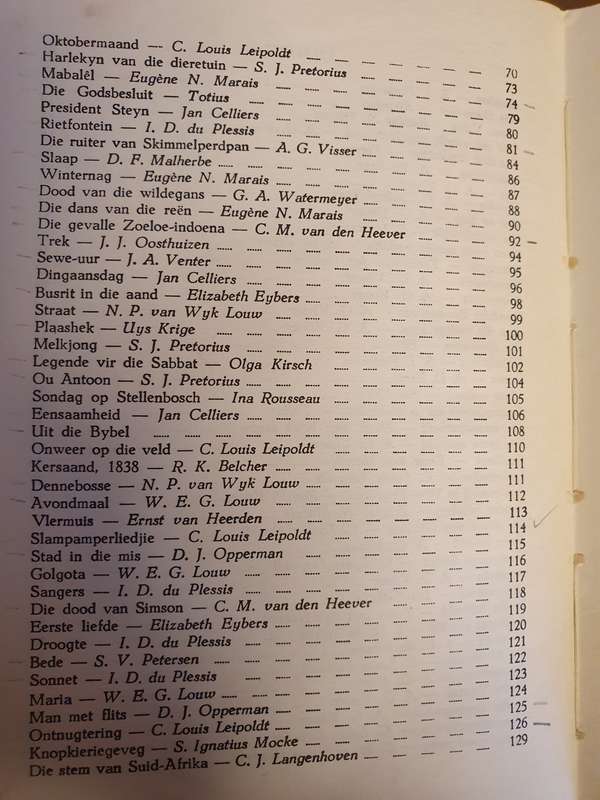 Oktobermaand — C. Louis Leipoldt 70
Harlekyn van die dieretuin — S. J. Pretorius 73
Mabalêl — Eugène N. Marais 74
Die Godsbesluit — Totius 79
President Steyn — Jan Celliers 80
Rietfontein — I. D. du Plessis 81
Die ruiter van Skimmelperdpan — A. G. Visser 84
Slaap — D. F. Malherbe 86
Winternag — Eugène N. Marais 87
Dood van die wildegans — G. A. Watermeyer 88
Die dans van die reën — Eugène N. Marais 90
Die gevalle Zoeloe-indoena — C. M. van den Heever 92
Trek — J. J. Oosthuizen 94
Sewe-uur — J. A. Venter 95
Dingaansdag — Jan Celliers 96
Busrit in die aand — Elizabeth Eybers 98
Straat — N. P. van Wyk Louw 99
Plaashek — Uys Krige 100
Melkjong — S. J. Pretorius 101
Legende vir die Sabbat — Olga Kirsch 102
Ou Antoon — S. J. Pretorius 104
Sondag op Stellenbosch — Ina Rousseau 105
Eensaamheid — Jan Celliers 106
Uit die Bybel 108
Onweer op die veld — C. Louis Leipoldt 110
Kersaand, 1838 — R. K. Belcher 111
Dennebosse — N. P. van Wyk Louw 111
Avondmaal — W. E. G. Louw 112
Vlermuis — Ernst van Heerden 113
Slampamperliedjie — C. Louis Leipoldt 114
Stad in die mis — D. J. Opperman 115
Golgota — W. E. G. Louw 116
Sangers — I. D. du Plessis 117
Die dood van Simson — C. M. van den Heever 118
Eerste liefde — Elizabeth Eybers 119
Droogte — I. D. du Plessis 120
Bede — S. V. Petersen 121
Sonnet — I. D. du Plessis 122
Maria — W. E. G. Louw 123
Man met flits — D. J. Opperman 124
Ontnugtering — C. Louis Leipoldt 125
Knopkieriegeveg — S. Ignatius Mocke 126
Die stem van Suid-Afrika — C. J. Langenhoven 129